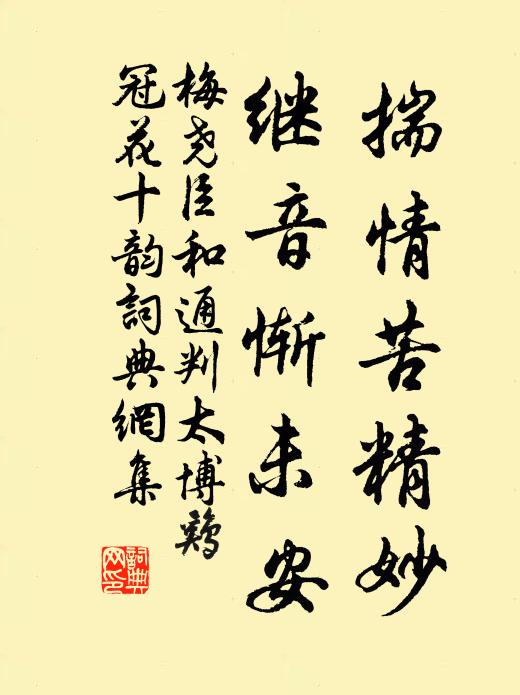 揣情苦精妙
继音惭未安
梅尧臣和通判太博鷄
冠花十韵詞典網集
詞典
网印